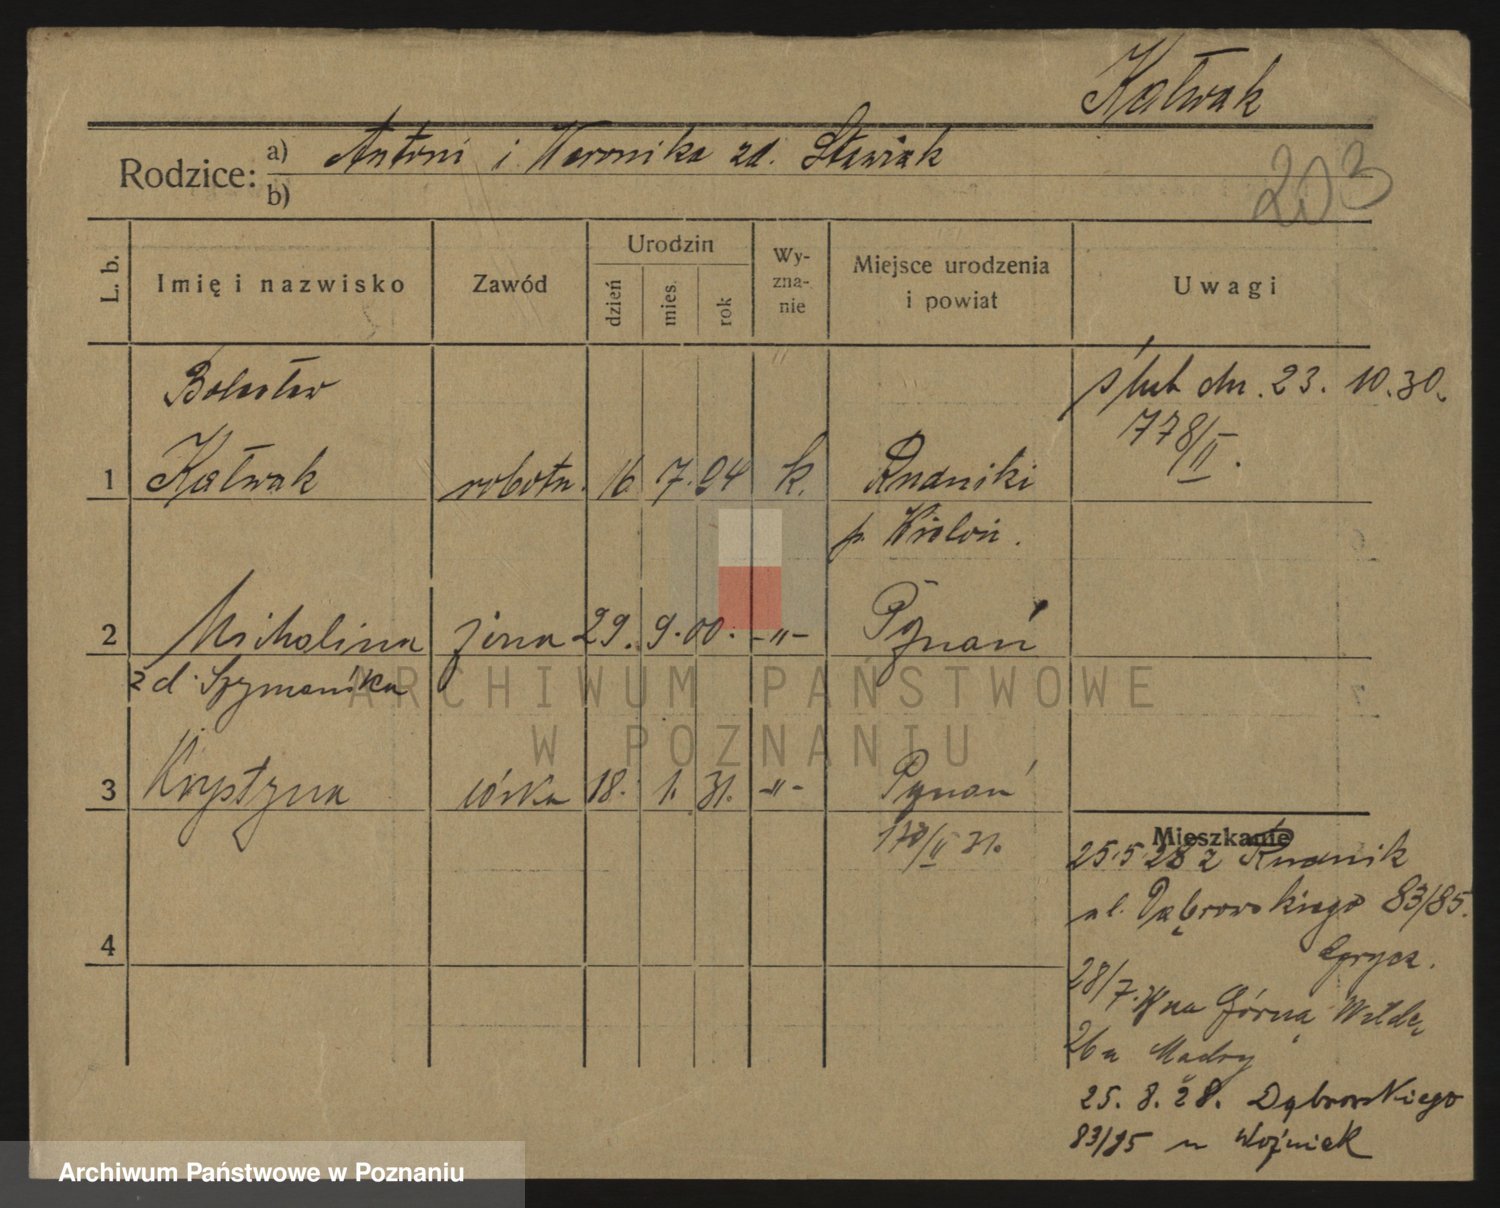 Kałwak
Rodzice: a) Antoni i Weronika zd. Stawiak
b)
203
L. b.
Imię i nazwisko
Zawód
Urodzin
dzień
mies.
rok
Wy-
zna-
nie
Miejsce urodzenia
i powiat
Uwagi
Bolesław
ślub dn. 23. 10. 30.
778/II.
1 Kałwak robotn. 16 7. 04 k. Rudniki
p. Wieluń.
2 Michalina żona 29. 9. 00. -"- Poznań
zd. Szymańska
ARCHIWUM PAŃSTWOWE
W POZNANIU
3 Krystyna córka 18. 1. 31. -"- Poznań
170/II 31.
Mieszkanie
25.5 28 z Rudnik
ul. Dąbrowskiego 83/85.
4
28/7. na Górną Wildę
26a Mądry
25. 8. 28. Dąbrowskiego
83/85 u Woźniak
Archiwum Państwowe w Poznaniu